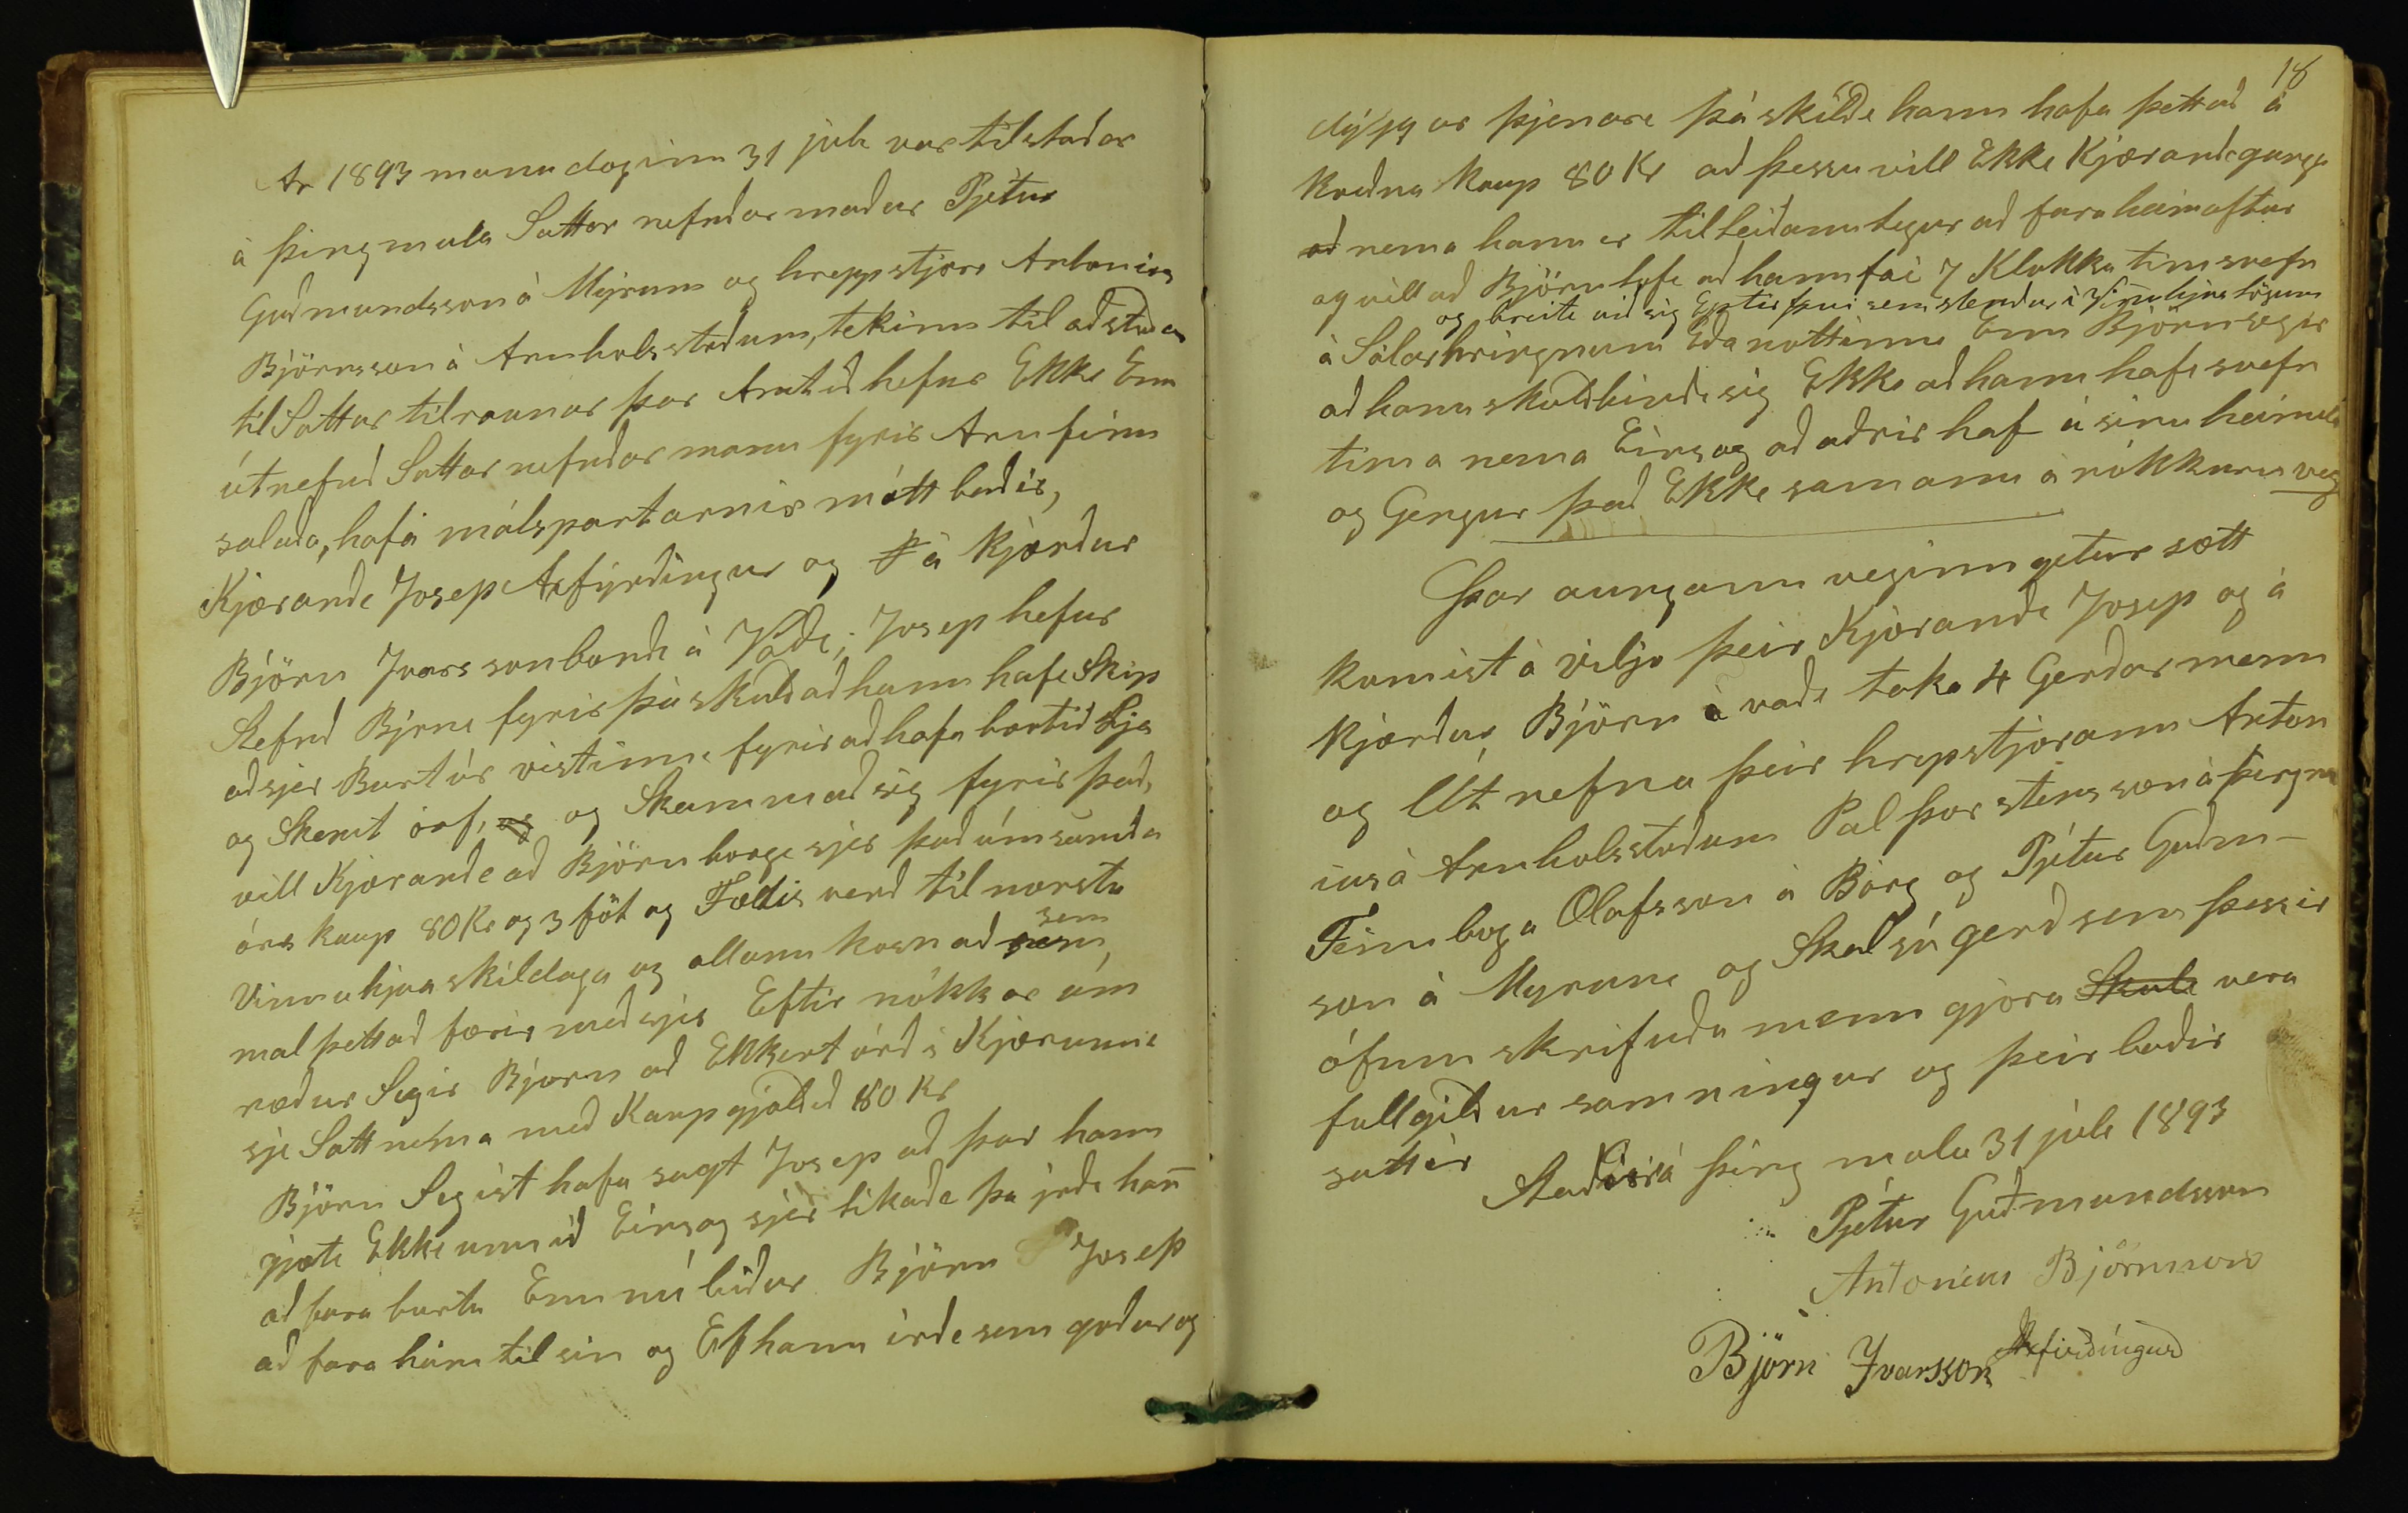 Ar 1893 manudaginn 31 juli var til stadar
á þingmula Sattar nefndar madur Pjetur
Gudmundsson á Mýrum og hreppstjóre Antonius
Björnsson á Arnholsstödum, tekinn til adstodar
til Sattar tilraunar þar Amtid hefur Ekke Enn
útnefnd Sattar nefndar mann fyrir Arnfinn
saluda, hafa málspartarnir mætt badir,
Kjærande Josep Axfýrdingur og á Kjærdur
Björn Ivarsson bonde á Vade; Josep hefur
Stefnd Birne fyrir þá skuld ad hann hafe Skip
ad sjer Burt úr vistinne fyrir ad hafa brotid Ljá
og Skemt órf, og og Skammad sig fyrir þad,
vill Kjærande ad Björn borge sjer þad úmsamda
árs kaup 80 Kr og 3 föt og Fædis verd til næstu
Vinnuhjua skildaga og allann kosnad sem
mal þettad færir med sjer Eftir nökkrar úm
rædur Segir Björn ad Ekkert órd i Kjærunne
sje Satt nema med Kaupgjaldid 80 Kr
Björn Segist hafa sagt Josep ad þar hann
gjæte Ekke unnid Eins og sjer likade þa irde han̄
ad fara burtu Enn nú bídur Björn Josep
ad fara heim til sin og Ef hann irde sem godur og
18
dýggur þjenare þá skilde hann hafa þettad á
kvedna kaup 80 Kr ad þessu vill Ekke Kjærande ganga
ad nema hann er tilleidannlegur ad fara heim aftur
og vill ad Björn lofe ad hann fái 7 Klukku tima svefn
og breite vid sig Eptir þvi sem stendur i Vinnuhjua lögum
á Sólarhringnum Eda nóttinne Enn Björn segir
ad hann skuldbinde sig Ekke ad hann hafe svefn
tima nema Eins og ad adrir haf á sinu heimili
og Gengur þad Ekke saman á nökkurn veg
Þar aungann veginn getur sætt
komist á vilja þeir Kjærande Josep og á
kjærdur Björn á vade taka 4 Gerdar menn
og Út nefna þeir hrepstjorann Anton
ius á Arnholsstodum Pal Þorsteinsson á þingm
Finnboga Olafsson á Borg og Pjetur Gudm-
son á Myrum og Skal sú gerd sem þessir
ófannskrifudu menn gjora Skule vera
fullgildur samningur og þeir badir
sattir
Staddir á þing mula 31 juli 1893
Pjetur Gudmundsson
Antonius Björnsson
Björn Ivarsson Axfirdingur